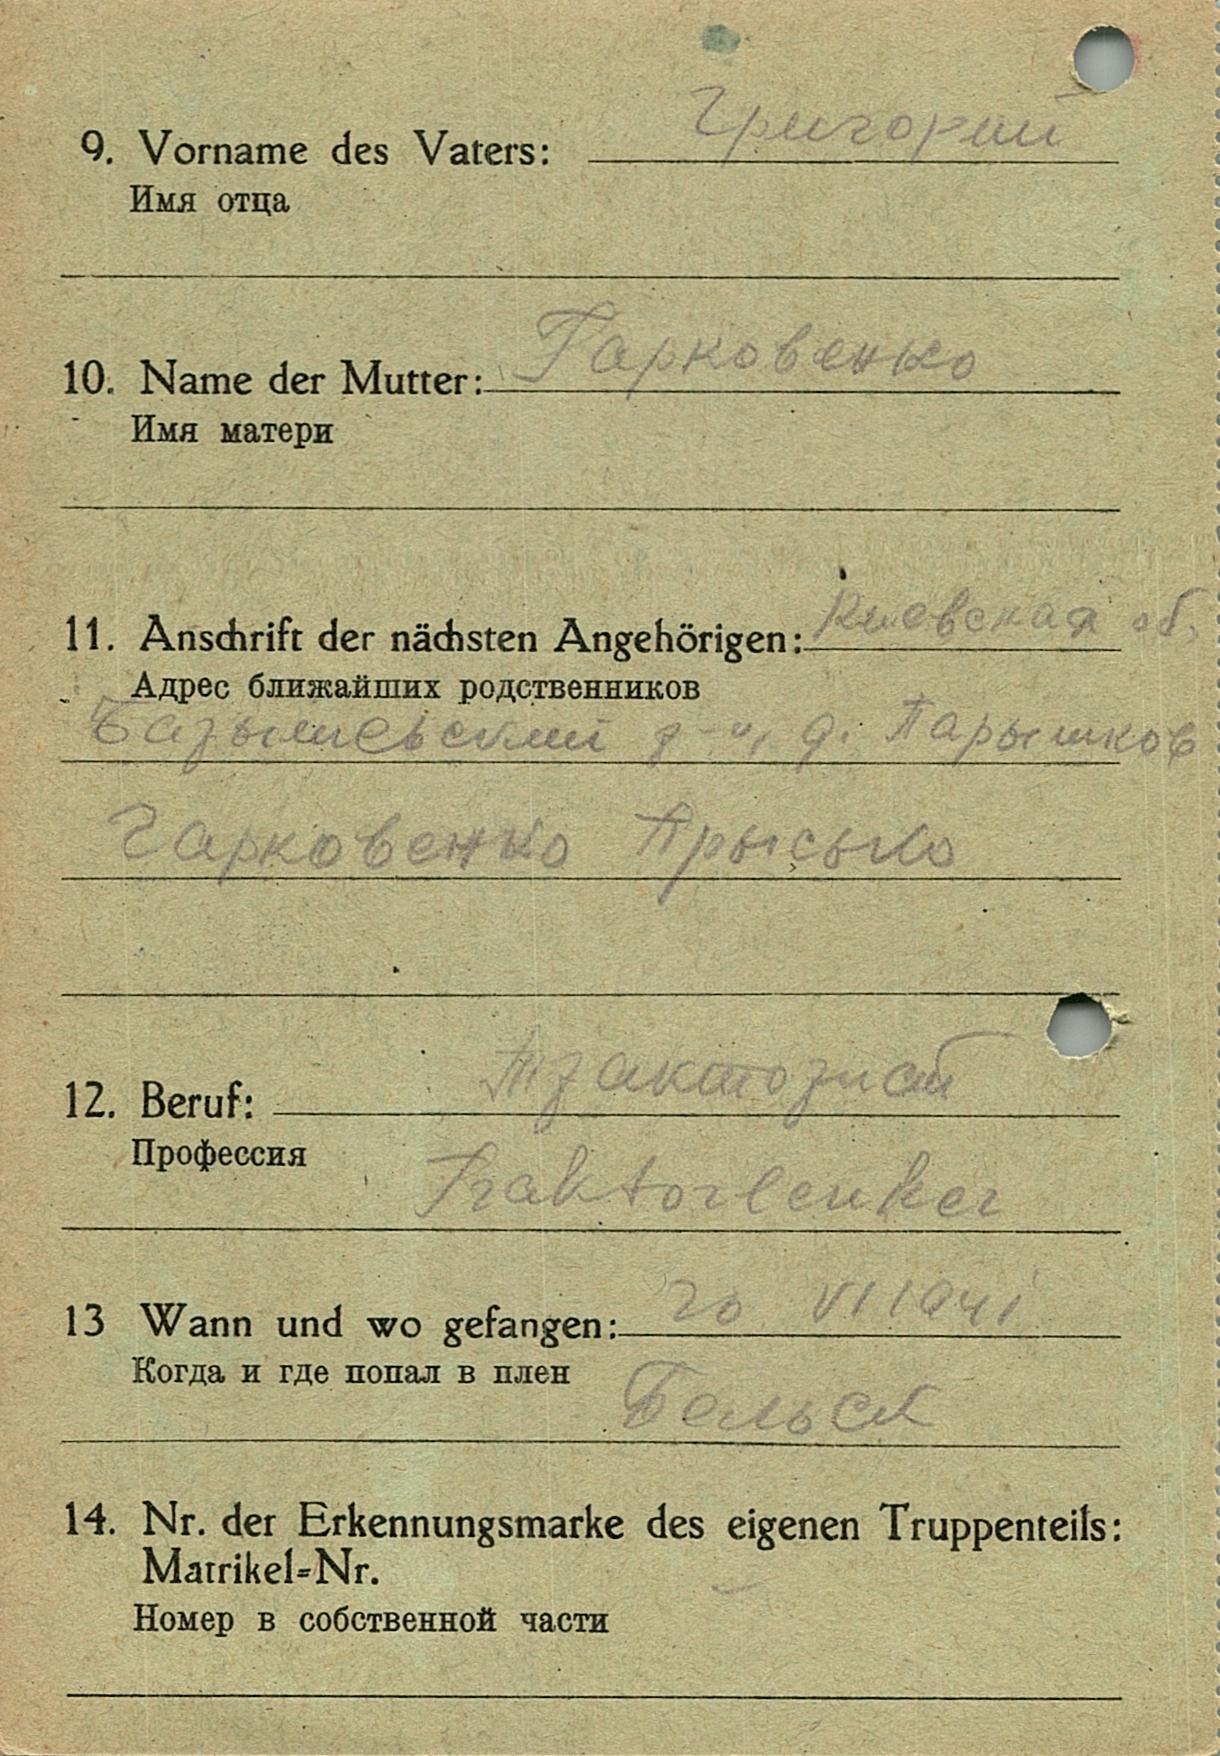 9. Vorname des Vaters: Григорий
Имя отца
10. Name der Mutter: Гарковенко
Имя матери
11. Anschrift der nächsten Angehörigen: Киевская об.
Адрес ближайших родственников
р-н, д. Парышков
Гарковенко Прысько
12. Beruf: Тракторист
Профессия
Traktorlenker
13 Wann und wo gefangen: 20 VI 1941
Когда и где попал в плен
Бельск
14. Nr. der Erkennungsmarke des eigenen Truppenteils:
Matrikel-Nr.
Номер в собственной части